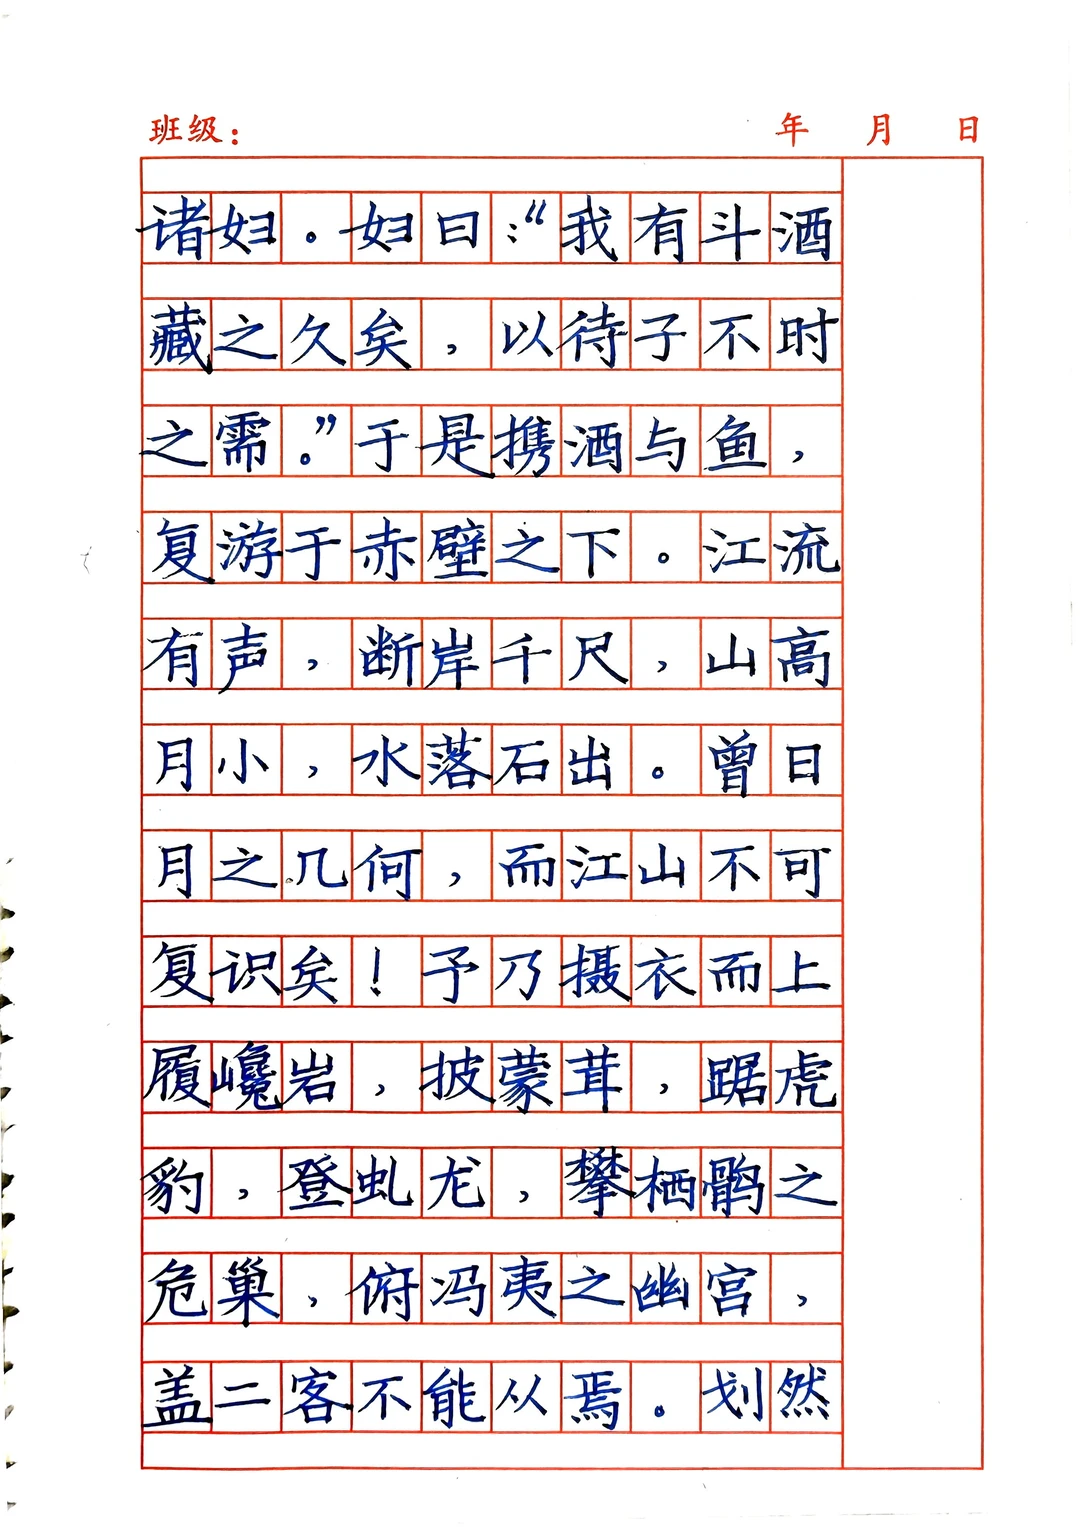 班级： 年 月 日
诸妇。妇曰：“我有斗酒
藏之久矣，以待子不时
之需。”于是携酒与鱼，
复游于赤壁之下。江流
有声，断岸千尺，山高
月小，水落石出。曾日
月之几何，而江山不可
复识矣！予乃摄衣而上
履巉岩，披蒙茸，踞虎
豹，登虬龙，攀栖鹘之
危巢，俯冯夷之幽宫，
盖二客不能从焉。划然